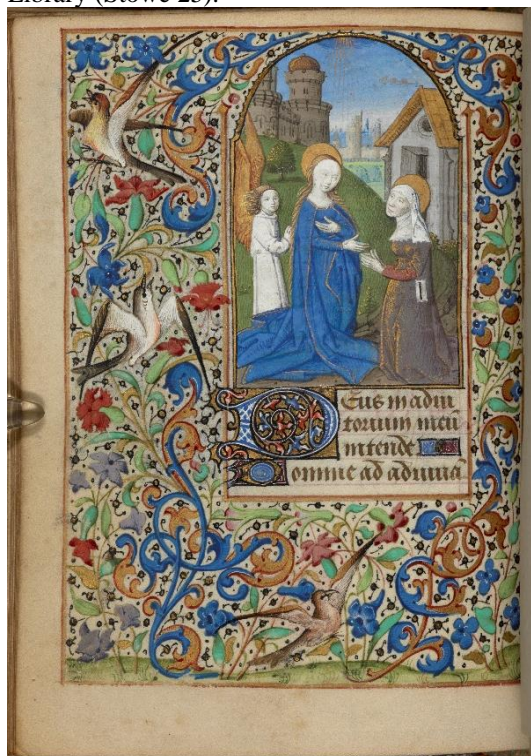 Library (Stowe 25).
Deus in adiu
torium meū
intende
Domine ad adiuua